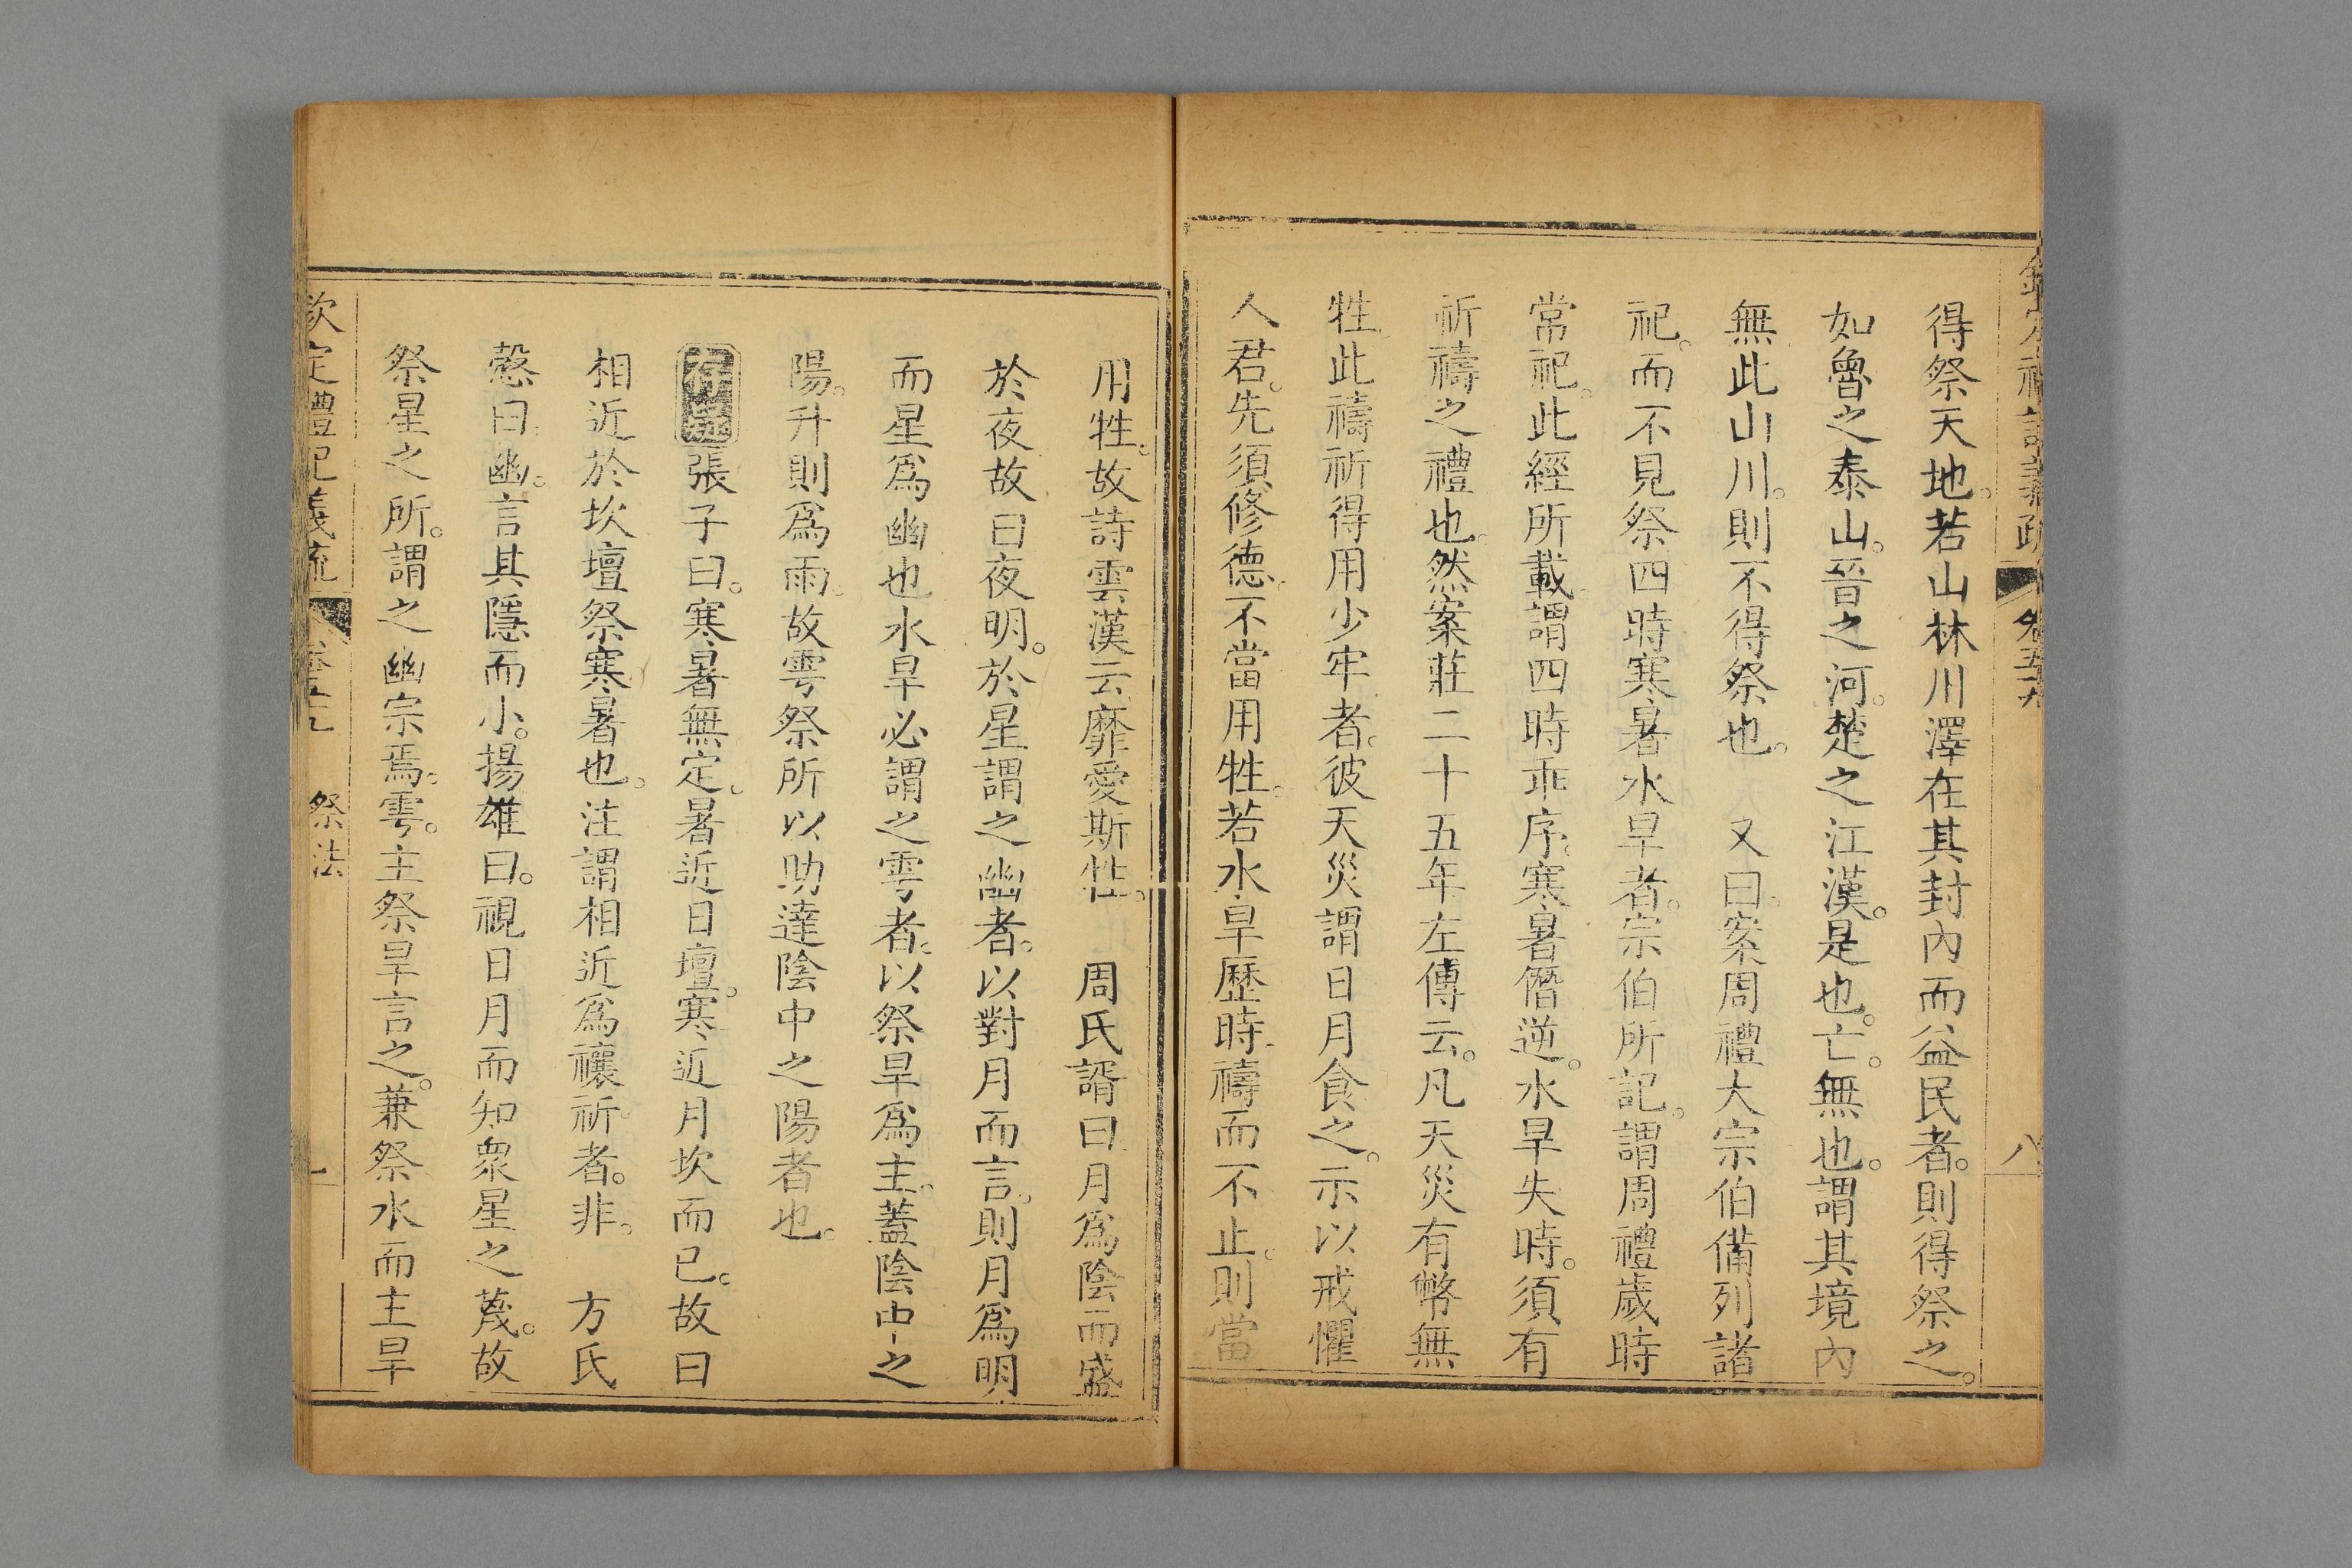 得祭天地。若山林川澤在其封內而益民者。則得祭之。
如魯之泰山。晉之河。楚之江漢。是也。亡。無也。謂其境內
無此山川。則不得祭也。 又曰。案周禮大宗伯備列諸
祀。而不見祭四時寒暑水旱者。宗伯所記。謂周禮歲時
常祀。此經所載。謂四時乖序。寒暑僭逆。水旱失時。須有
祈禱之禮也。然案莊二十五年左傳云。凡天災有幣無
牲。此禱祈得用少牢者。彼天災謂日月食之。示以戒懼
人君。先須修德。不當用牲。若水旱歷時。禱而不止。則當
用牲。故詩雲漢云靡愛斯牲。 周氏諝曰月爲陰而盛
於夜故曰夜明。於星謂之幽者。以對月而言。則月爲明
而星爲幽也水旱必謂之雩者。以祭旱爲主。蓋陰中之
陽。升則爲雨。故雩祭所以助達陰中之陽者也。
張子曰。寒暑無定。暑近日壇。寒近月坎而已。故曰
相近於坎壇祭寒暑也。注謂相近爲禳祈者。非。 方氏
慤曰。幽。言其隱而小。揚雄曰。視日月而知眾星之蔑。故
祭星之所。謂之幽宗焉。雩。主祭旱言之。兼祭水而主旱
欽定禮記義疏 祭法